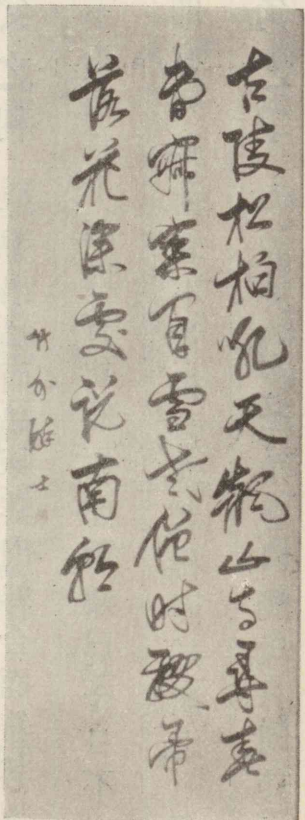 古陵松柏吼天飆山寺尋春
春寂寥眉雪老僧時輟帚
落花深處説南朝
竹外醉士